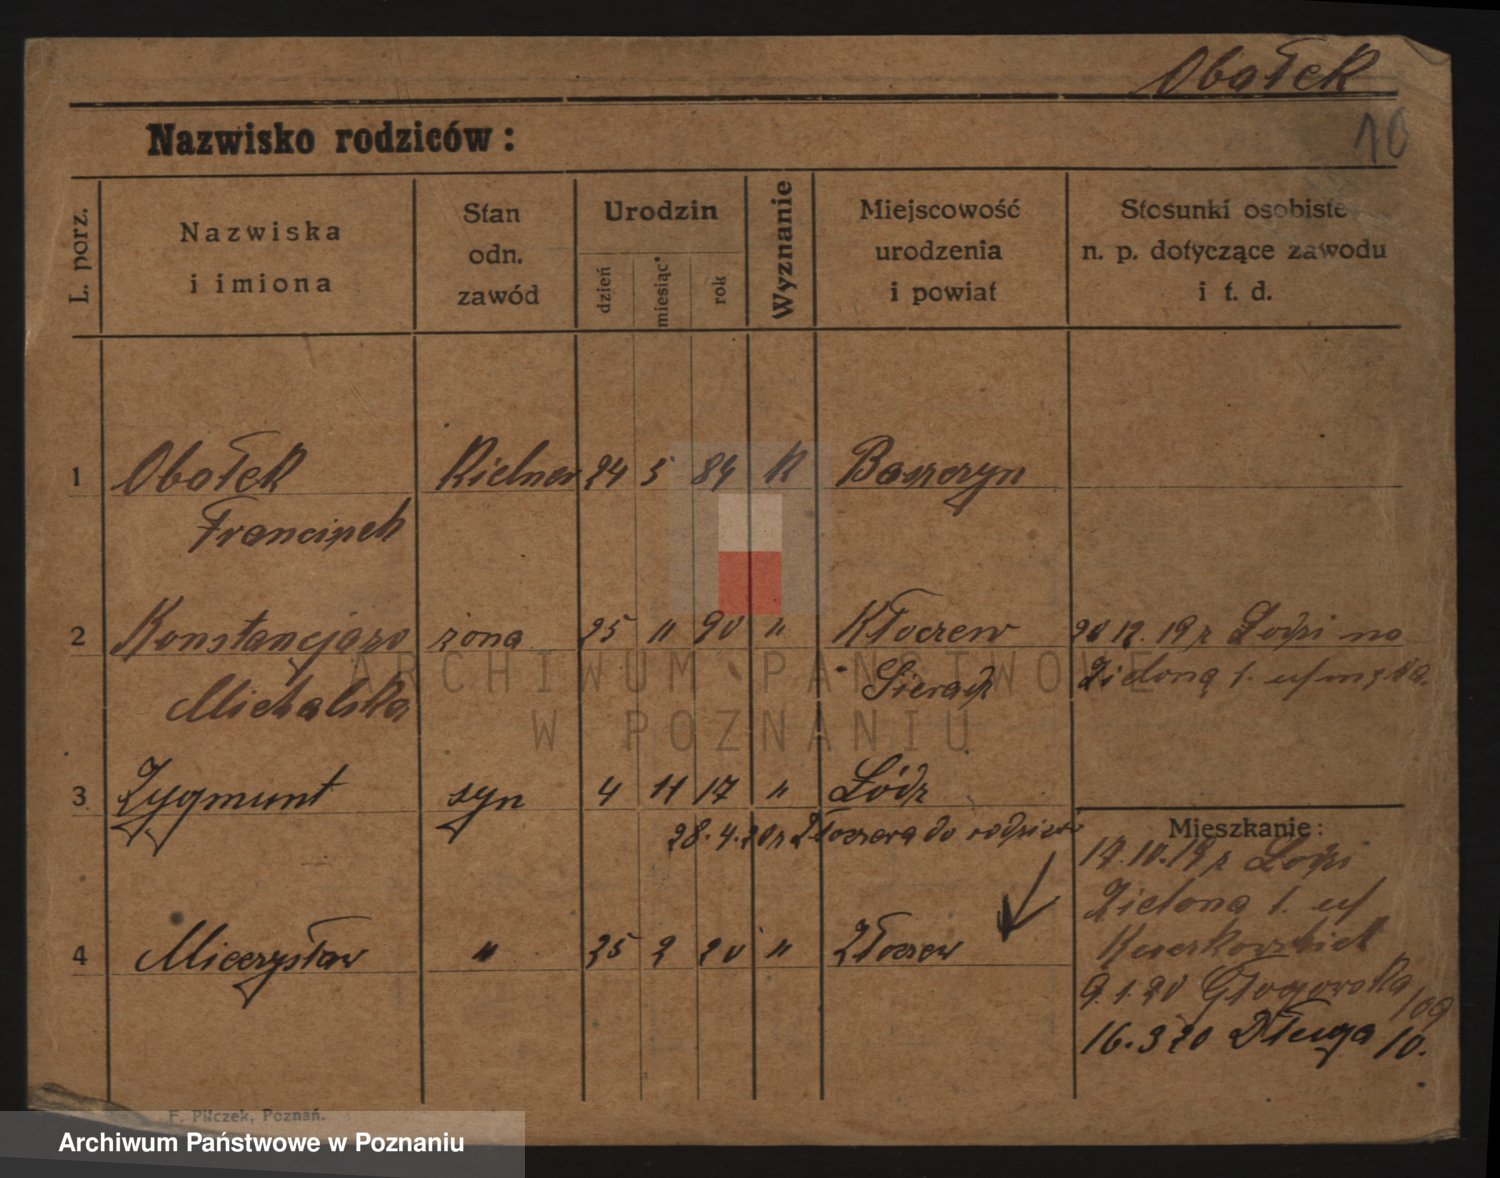 Obołek
10
Nazwisko rodziców:
L. porz.
Nazwiska
i imiona
Stan
odn.
zawód
Urodzin
dzień
miesiąc
rok
Wyznanie
Miejscowość
urodzenia
i powiat
Stosunki osobiste
n. p. dotyczące zawodu
i t. d.
1 Obołek Kielner 24 5 84 K
Franciszek
2 żona 25 11 90 " Kłoczew
Michalska Sieradz
Zieloną 1.
3 Zygmunt syn 4 11 17 " Łódz
28.4.20 r Złoczewa do rodziców
Mieszkanie:
17.10.19 r Łodzi
Zielona 1.
4 Mieczysław " 25 2 20 " Złoczew
9.1.20 Głogowska 109
16.3 20 Długa 10.
F. Pilczek, Poznań.
ARCHIWUM PAŃSTWOWE
W POZNANIU
Archiwum Państwowe w Poznaniu